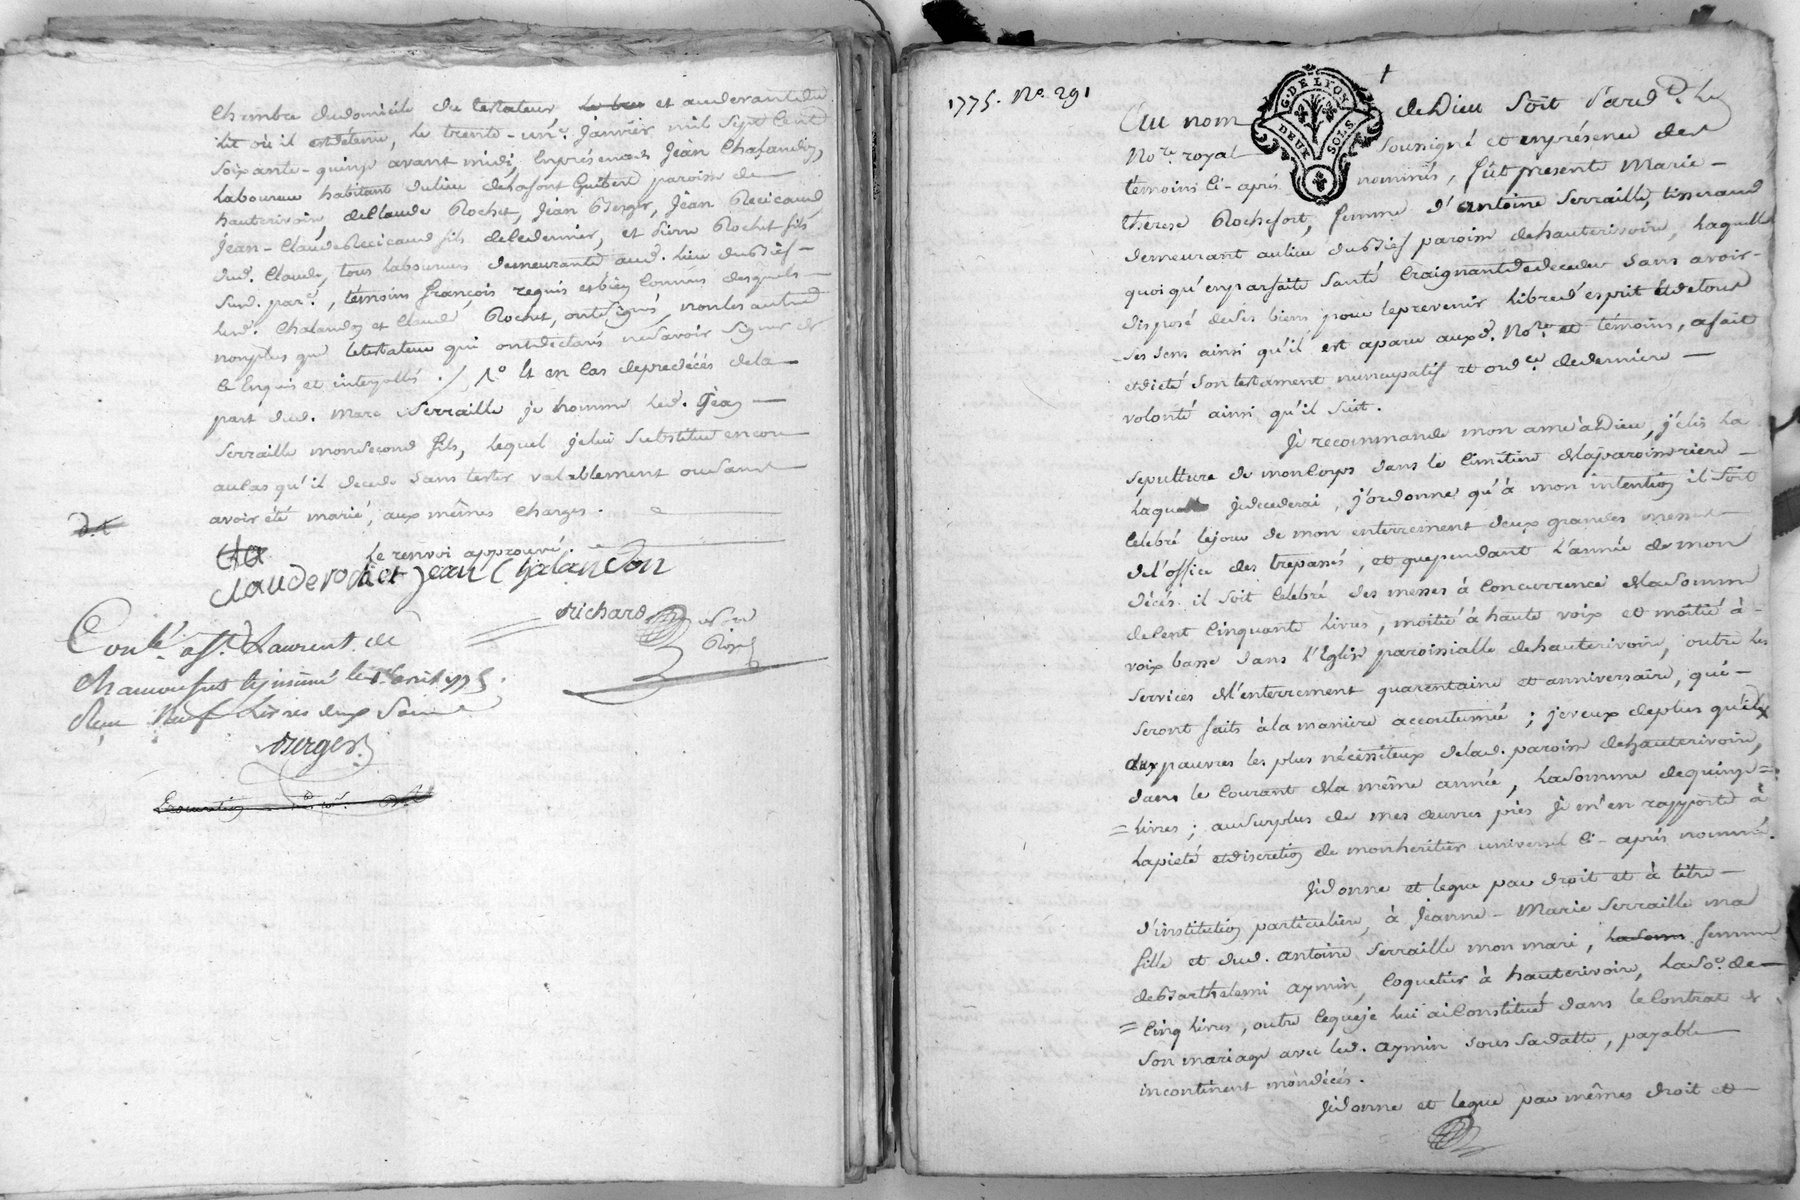 chambre du domicile du testateur et au devant du
lit où il est detenu, le trente-un.e janvier mil sept cent
soixante-quinze avant midi, en présence de Jean Chalandon,
laboureur habitant du lieu de paroisse de
hauterivoire, de Claude Rochet, Jean Berger, Jean Recicaud
Jean-Claude Recicaud fils de ce dernier, et Pierre Rochet fils
dud. Claude, tous laboureurs demeurants aud. lieu du Bief-
susd. par.e, témoins françois requis et bien connus desquels
led. Chalandon et Claude Rochet, ont signés, non les autres
non plus que le testateur qui ont déclarés ne savoir signer de
ce enquis et interpellés ./ 1º et en cas de predécés de la
part dud. Marc Serraille je nomme led. Jean
Serraille mon second fils, lequel je lui substitue encore
au cas qu'il decede sans tester valablement ou sans
avoir été marié, aux mêmes charges.
le renvoi approuvé.
claude rochet jean Chalandon
Richard no.re Royal
Conlé à St. Laurent de
chamousset insinué le 1er avril 1775.
Reçu Neuf livres deux sous
Berger
1775. No. 291
G. DE LYON
DEUX SOLS
Au nom de Dieu soit pard.t le
No.re royal soussigné et en présence des
témoins ci-après nommés, fût presente Marie-
thérese Rochefort, femme d'antoine Serraille, tisserand
demeurant au lieu du Bief paroisse de hauterivoire, laquelle
quoi qu'en parfaite santé craignant de deceder sans avoir
disposé de ses biens pour le prevenir libre d'esprit et de tous
ses sens ainsi qu'il est aparu auxd. No.re et témoins, a fait
et dicté son testament nuncupatif et ord.ce de derniere
volonté ainsi qu'il suit.
Je recommande mon ame à Dieu, j'élis la
sepulture de mon corps dans le cimetière de la paroisse rière
laquelle je decederai, j'ordonne qu'à mon intention il soit
celebré le jour de mon enterrement deux grandes messes
de l'office des trepassés, et que pendant l'année de mon
décés il soit celebré des messes à concurrence de la somme
de cent cinquante livres, moitié à haute voix et moitié à
voix basse dans l'Eglise paroissialle de hauterivoire, outre les
services de l'enterrement quarentaine et anniversaire, qui
seront faits à la maniere accoutumée ; je veux de plus qu'il
aux pauvres les plus nécessiteux de lad. paroisse de hauterivoire,
dans le courant de la même année, la somme de quinze =
= livres ; au surplus de mes œuvres pies je m'en rapporte à
la pieté et discretion de mon heritier universel ci-après nommé.
Je donne et legue par droit et à titre
d'institution particuliere, à Jeanne-Marie Serraille ma
fille et dud. antoine Serraille mon mari, femme
de Barthelemi aymin, coquetier à hauterivoire, la so.e de
= cinq livres, outre ce que je lui ai constitué dans le contrat de
son mariage avec led. aymin sous sa datte, payable
incontinent mon décés.
Je donne et legue par mêmes droit et